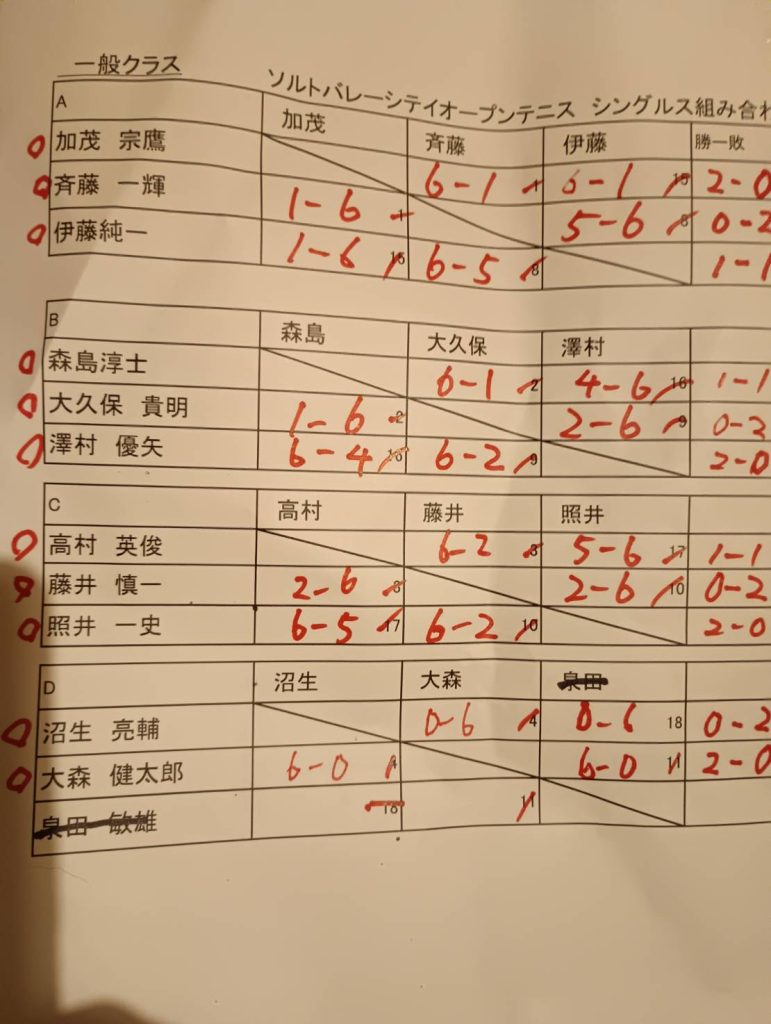 一般クラス
ソルトバレーシティオープンテニス シングルス組み合わ
A 加茂 斉藤 伊藤 勝一敗
加茂 宗鷹 6-1 1 6-1 15 2-0
斉藤 一輝 1-6 1 5-6 8 0-2
伊藤純一 1-6 15 6-5 8 1-1
B 森島 大久保 澤村
森島淳士 6-1 2 4-6 16 1-1
大久保 貴明 1-6 2 2-6 9 0-2
澤村 優矢 6-4 16 6-2 9 2-0
C 高村 藤井 照井
高村 英俊 6-2 3 5-6 17 1-1
藤井 慎一 2-6 3 2-6 10 0-2
照井 一史 6-5 17 6-2 10 2-0
D 沼生 大森 泉田
沼生 亮輔 0-6 4 0-6 18 0-2
大森 健太郎 6-0 4 6-0 11 2-0
泉田 敏雄 18 11